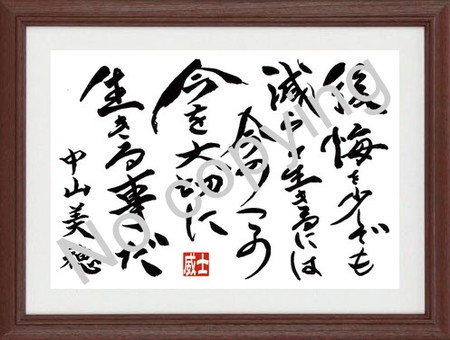 後悔を少でも
減らし生きるには
今のこの
今を大切に
生きる事だ
中山美穂
威士
No copying